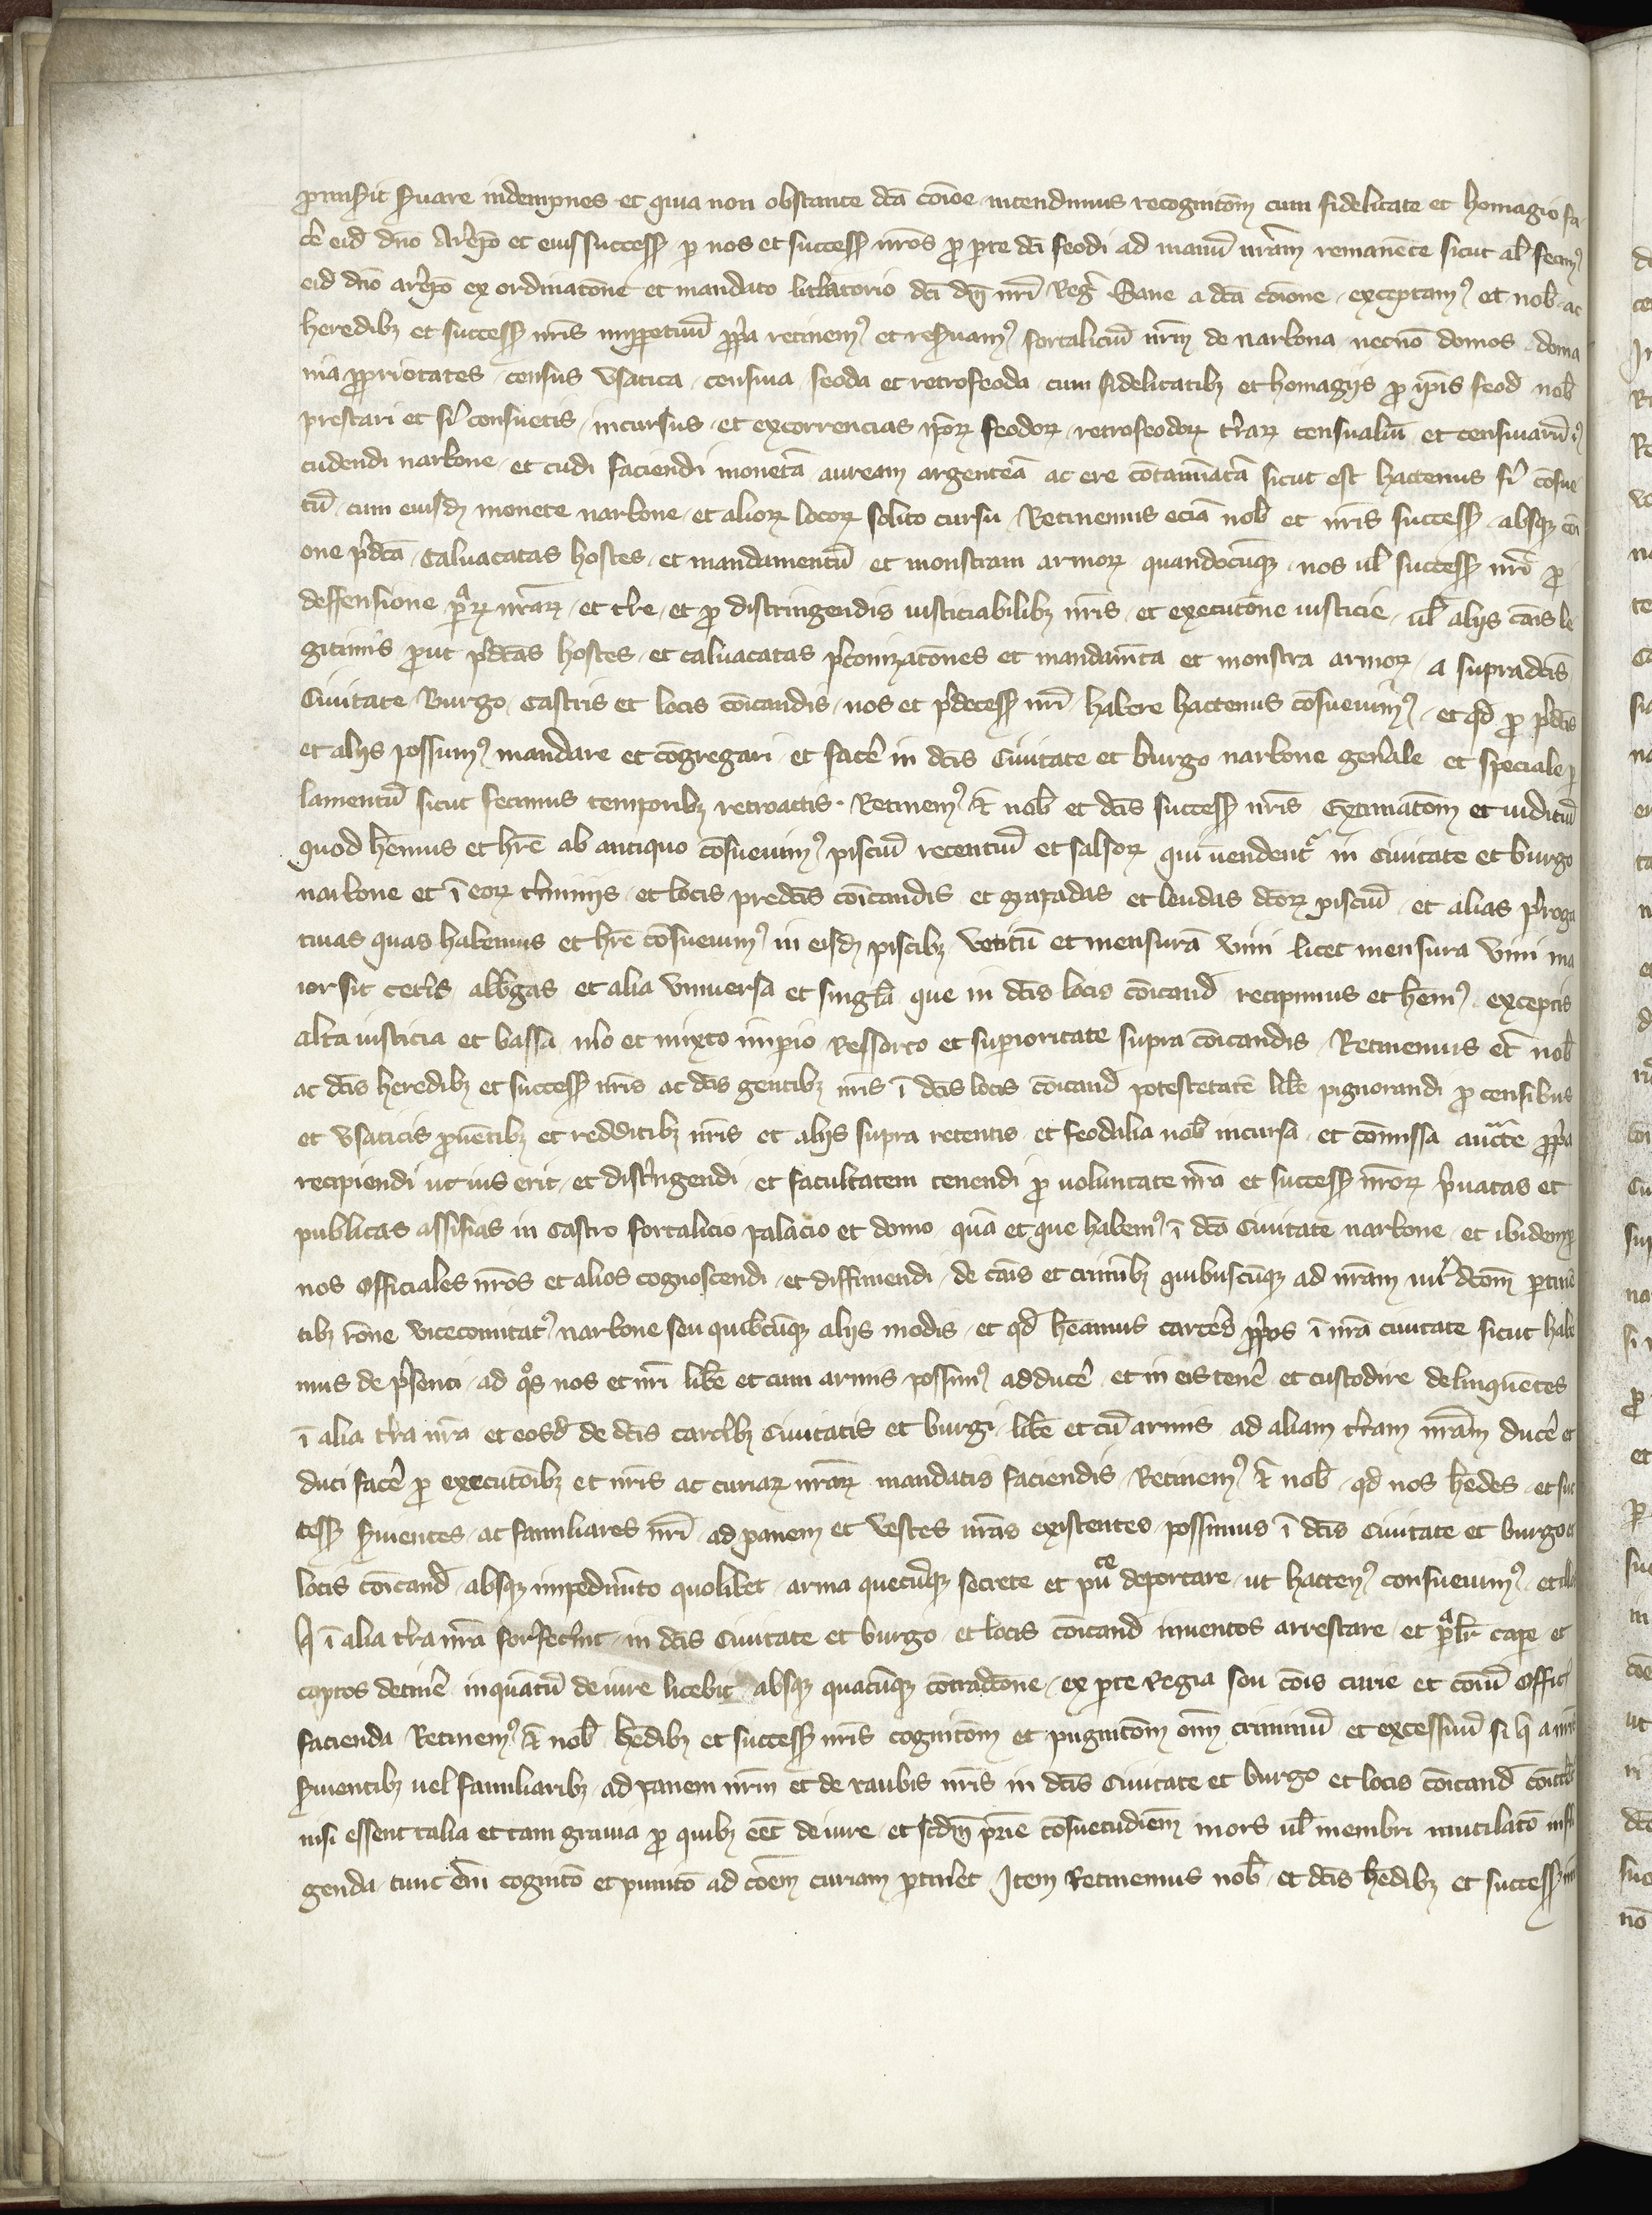 promisit s̾uare indempnes et quia non obstante dc̄a cōi̇oe intendimus recognitōm cum fidelitate et homagio fa
c̄e eid̄ dn̄o Arēpo et eius success̄ p nos et success̄ nr̄os pro pte dc̄i feodi ad manū nr̄am remanēte sicut al̄ fecim⁹
eid̄ dn̄o arēpo ex ordinatōne et mandato litt̄atorio dc̄i dn̄i nr̄i Reḡ Sane a dc̄a cōione exceptam⁹ et nob̄ ac
heredibȝ et success̄ nr̄is imp̄petuū pp̄a retinem⁹ et res̾uam⁹ fortaliciū nr̄m de narbona necnō domos doma
nia pprietates census vsatica censiua feoda et retrofeoda cum fidelitatibȝ et homagijs pro ip̄is feod̄ nob̄
prestari et fi̾ consuetis incursus et excorrencias ip̄oꝝ feodoꝝ retrofeodoꝝ tr̄aꝝ censualiū et censiuarū
cudendi narbone et cudi faciendi monetā auream argenteā ac ere cōtaminatā sicut est hactenus fi̾ cōsue
tū cum eiusdȝ monete narbone et alioꝝ locoꝝ solito cursu Retinemus eciā nob̄ et nr̄is success̄ absqȝ cōi
one p̄dc̄a caluacatas hostes et mandamentū et monstram armoꝝ quandocūqȝ nos ul̄ success̄ nr̄i pro
deffensione prᵃꝝ nr̄aꝝ et tr̄e et pro distringendis iusticiabilibȝ nr̄is et executōne iusticie ul̄ alijs cāis le
gitimis prout p̄dc̄as hostes et caluacatas p̄conizatōnes et mandam̄ta et monstra armoꝝ a supradc̄is
Ciuitate Burgo Castris et locis cōicandis nos et p̄decess̄ nr̄i habere hactenus cōsueuim⁹ et qd̄ pro p̄dc̄is
et alijs possum⁹ mandare et cōgregari et fac̄e in dc̄is Ciuitate et burgo narbone gen̄ale et speciale p
lamentū sicut fecimus temporibȝ retroactis Retinem⁹ et̄ nob̄ et dc̄is success̄ nr̄is extimatōm et iudiciū
quod hēmus et hr̄e ab antiquo cōsueuim⁹ pisciū recentiū et salsoꝝ qui uendent̾ in ciuitate et burgo
narbone et ī eoꝝ t̄minijs et locis predc̄is cōicandis et grapadas et leudas dc̄oꝝ pisciū et alias p̄roga
tiuas quas habemus et hr̄e cōsueuim⁹ in eisdȝ piscibȝ vetitū et mensurā vini licet mensura vini ma
ior sit cet̄is alb̄gas et alia vniuersa et singl̄a que in dc̄is locis cōicand̄ recipimus et hēm⁹ exceptis
alta iusticia et bassa m̄o et mixto imperio Ressorto et superioritate supra cōicandis Retinemus et̄ nob̄
ac dc̄is heredibȝ et success̄ nr̄is ac dc̄is gentibȝ nr̄is ī dc̄is locis cōicand̄ potestetatē lib̄e pignorandi pro censibus
et vsaticis prouētibȝ et redditibȝ nr̄is et alijs supra retentis et feodalia nob̄ incursa et cōmissa auct̄te pp̄a
recipiendi ut ius erit et dist̄ngendi et facultatem tenendi pro voluntate nr̄a et success̄ nr̄oꝝ p̄uatas et
publicas assisias in Castro fortalicio palacio et domo quā et que habem⁹ ī dc̄a Ciuitate narbone et ibidem p
nos Officiales nr̄os et alios cognoscendi et diffiniendi de cāis et crim̄ibȝ quibuscūqȝ ad nr̄am iur̾dc̄om ptinē
tibȝ rōne vicecomitat⁹ narbone seu quibcūqȝ alijs modis et qd̄ hēamus carc̄es pp̄os ī nr̄a ciuitate sicut habe
mus de p̄senti ad qos nos et nr̄i lib̄e et cum armis possim⁹ adduc̄e et in eis ten̄e et custodire delinquētes
ī alia tr̄a nr̄a et eosd̄ de dc̄is carc̄ibȝ Ciuitatis et burgi lib̄e et cū armis ad aliam tr̄am nr̄am duc̄e et
duci fac̄e pro executōibȝ et nr̄is ac curiaꝝ nr̄aꝝ mandatis faciendis Retinem⁹ et̄ nob̄ qd̄ nos hēdes et suc
cess̄ s̾uientes ac familiares nr̄i ad panem et vestes nr̄as existentes possimus ī dc̄is Ciuitate et burgo et
locis cōicand̄ absqȝ impedimēto quolibet arma quecūqȝ secrete et puᶜᵉ deportare ut hacten⁹ consueuim⁹ et illos
q̄ ī alia tr̄a nr̄a forefec̄int in dc̄is Ciuitate et burgo et locis cōicand̄ inuentos arrestare et prᵃlr̄ cape et
captos detin̄e inquātū de iure licebit absqȝ quacūqȝ cōtradc̄one ex pte Regia seu cōis curie et cōiū Offic̄
facienda Retinem⁹ et̄ nob̄ hēdibȝ et success̄ nr̄is cognitōm et pugnitōm om̄ criminū et excessuū si q̄ a nr̄is
s̾uientibȝ uel familiaribȝ ad panem nr̄m et de raubis nr̄is in dc̄is Ciuitate et burgo et locis cōicand̄ cōitt̄et
nisi essent talia et tam grauia pro quibȝ eēt de iure et scd̄m pr̄ie cōsuetudiēm mors ul̄ membri mutilatō infli
genda tunc em̄ cognitō et punitō ad cōem curiam ptin̄et Item Retinemus nob̄ et dc̄is hēdibȝ et success̄ nr̄is